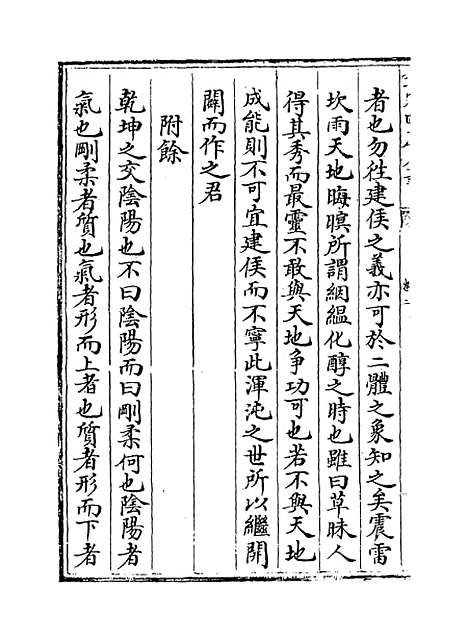 者也勿徃建侯之義亦可於二體之象知之矣震雷
坎雨天地晦暝所謂絪縕化醇之時也雖曰草昧人
得其秀而最靈不敢與天地争功可也若不與天地
成能則不可宜建侯而不寧此渾沌之世所以繼開
闢而作之君
附餘
乾坤之交陰陽也不曰陰陽而曰剛柔何也陰陽者
氣也剛柔者質也氣者形而上者也質者形而下者